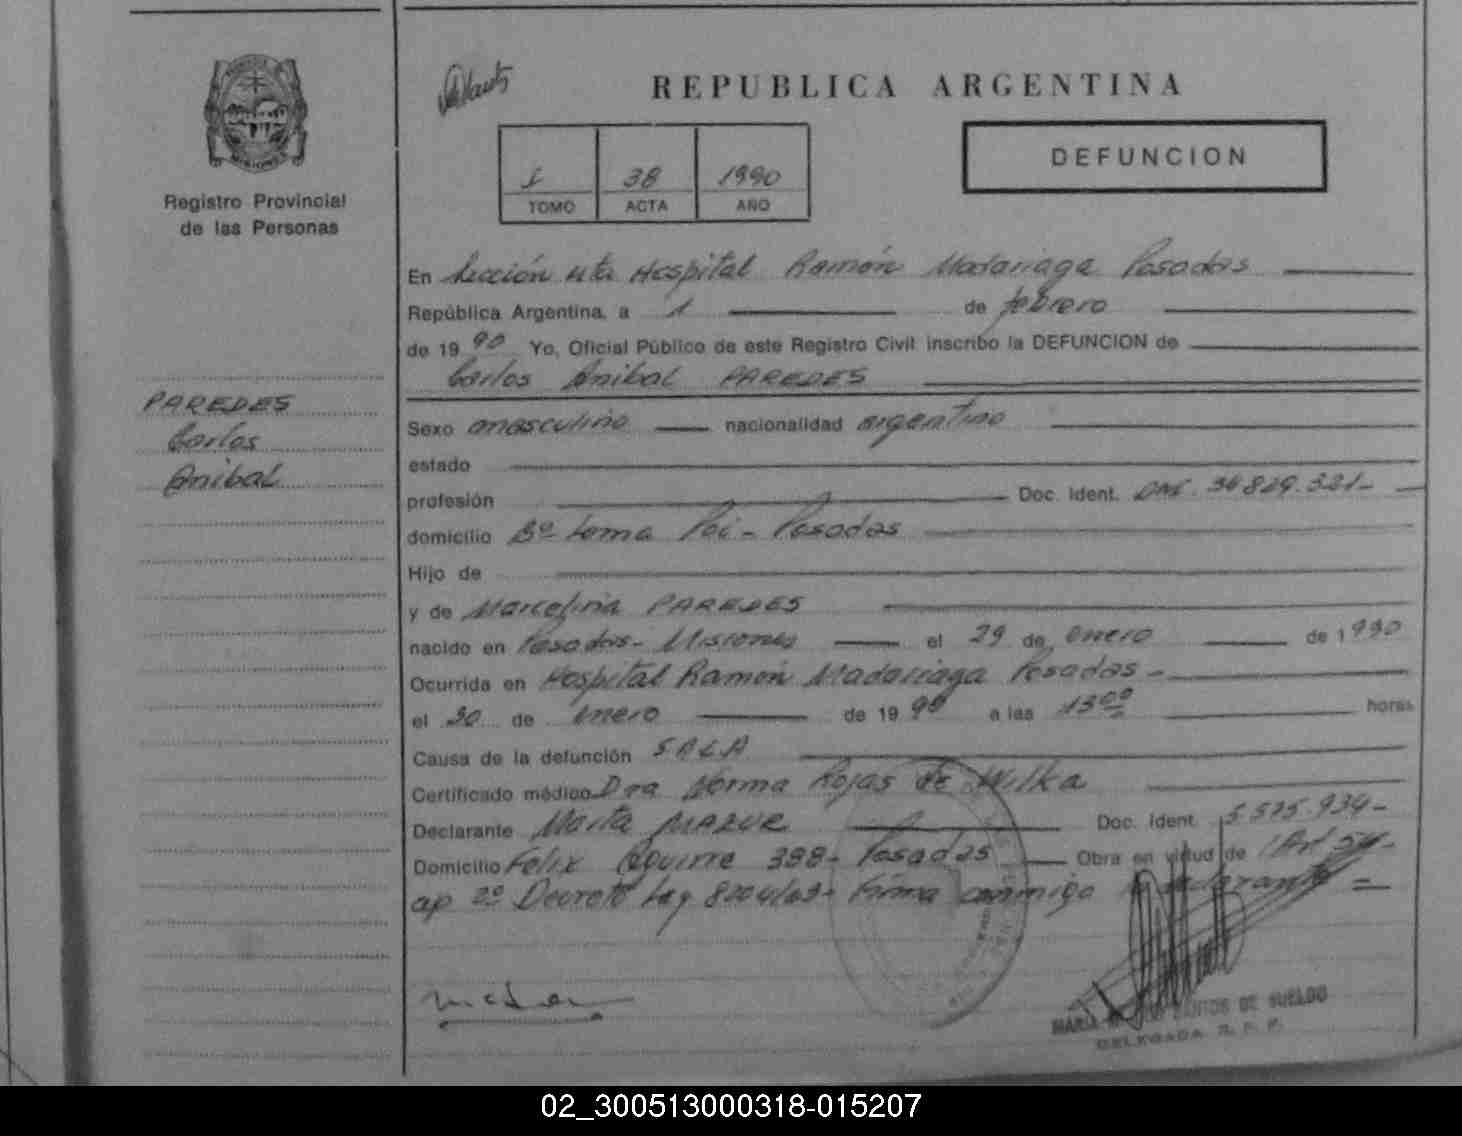 REPUBLICA ARGENTINA
I 38 1990
TOMO ACTA AÑO
DEFUNCION
MISIONES
Registro Provincial
de las Personas
PAREDES
Carlos
Anibal
En Sección 4ta Hospital Ramón Madariaga Posadas
República Argentina, a 1 de febrero
de 19 90 Yo, Oficial Público de este Registro Civil inscribo la DEFUNCION de
Carlos Anibal PAREDES
Sexo masculino nacionalidad argentino
estado
profesión Doc. Ident. DNI. 34829.321-
domicilio Bº Loma Poi - Posadas
Hijo de
y de Marcelina PAREDES
nacido en Posadas - Misiones el 29 de enero de 1990
Ocurrida en Hospital Ramón Madariaga Posadas -
el 30 de enero de 19 90 a las 13⁰⁰ horas
Causa de la defunción S.A.L.A
Certificado médico Dra Norma Rojas de Milka
Declarante Marta MAZUR Doc. Ident. 5.575.934-
Domicilio Felix Aguirre 388- Posadas Obra en virtud de (Art 54-
ap 2º Decreto Ley 8204/63- Firma conmigo declarante =
MARIA SANTOS DE SUELDO
DELEGADA R. P. P.
02_300513000318-015207